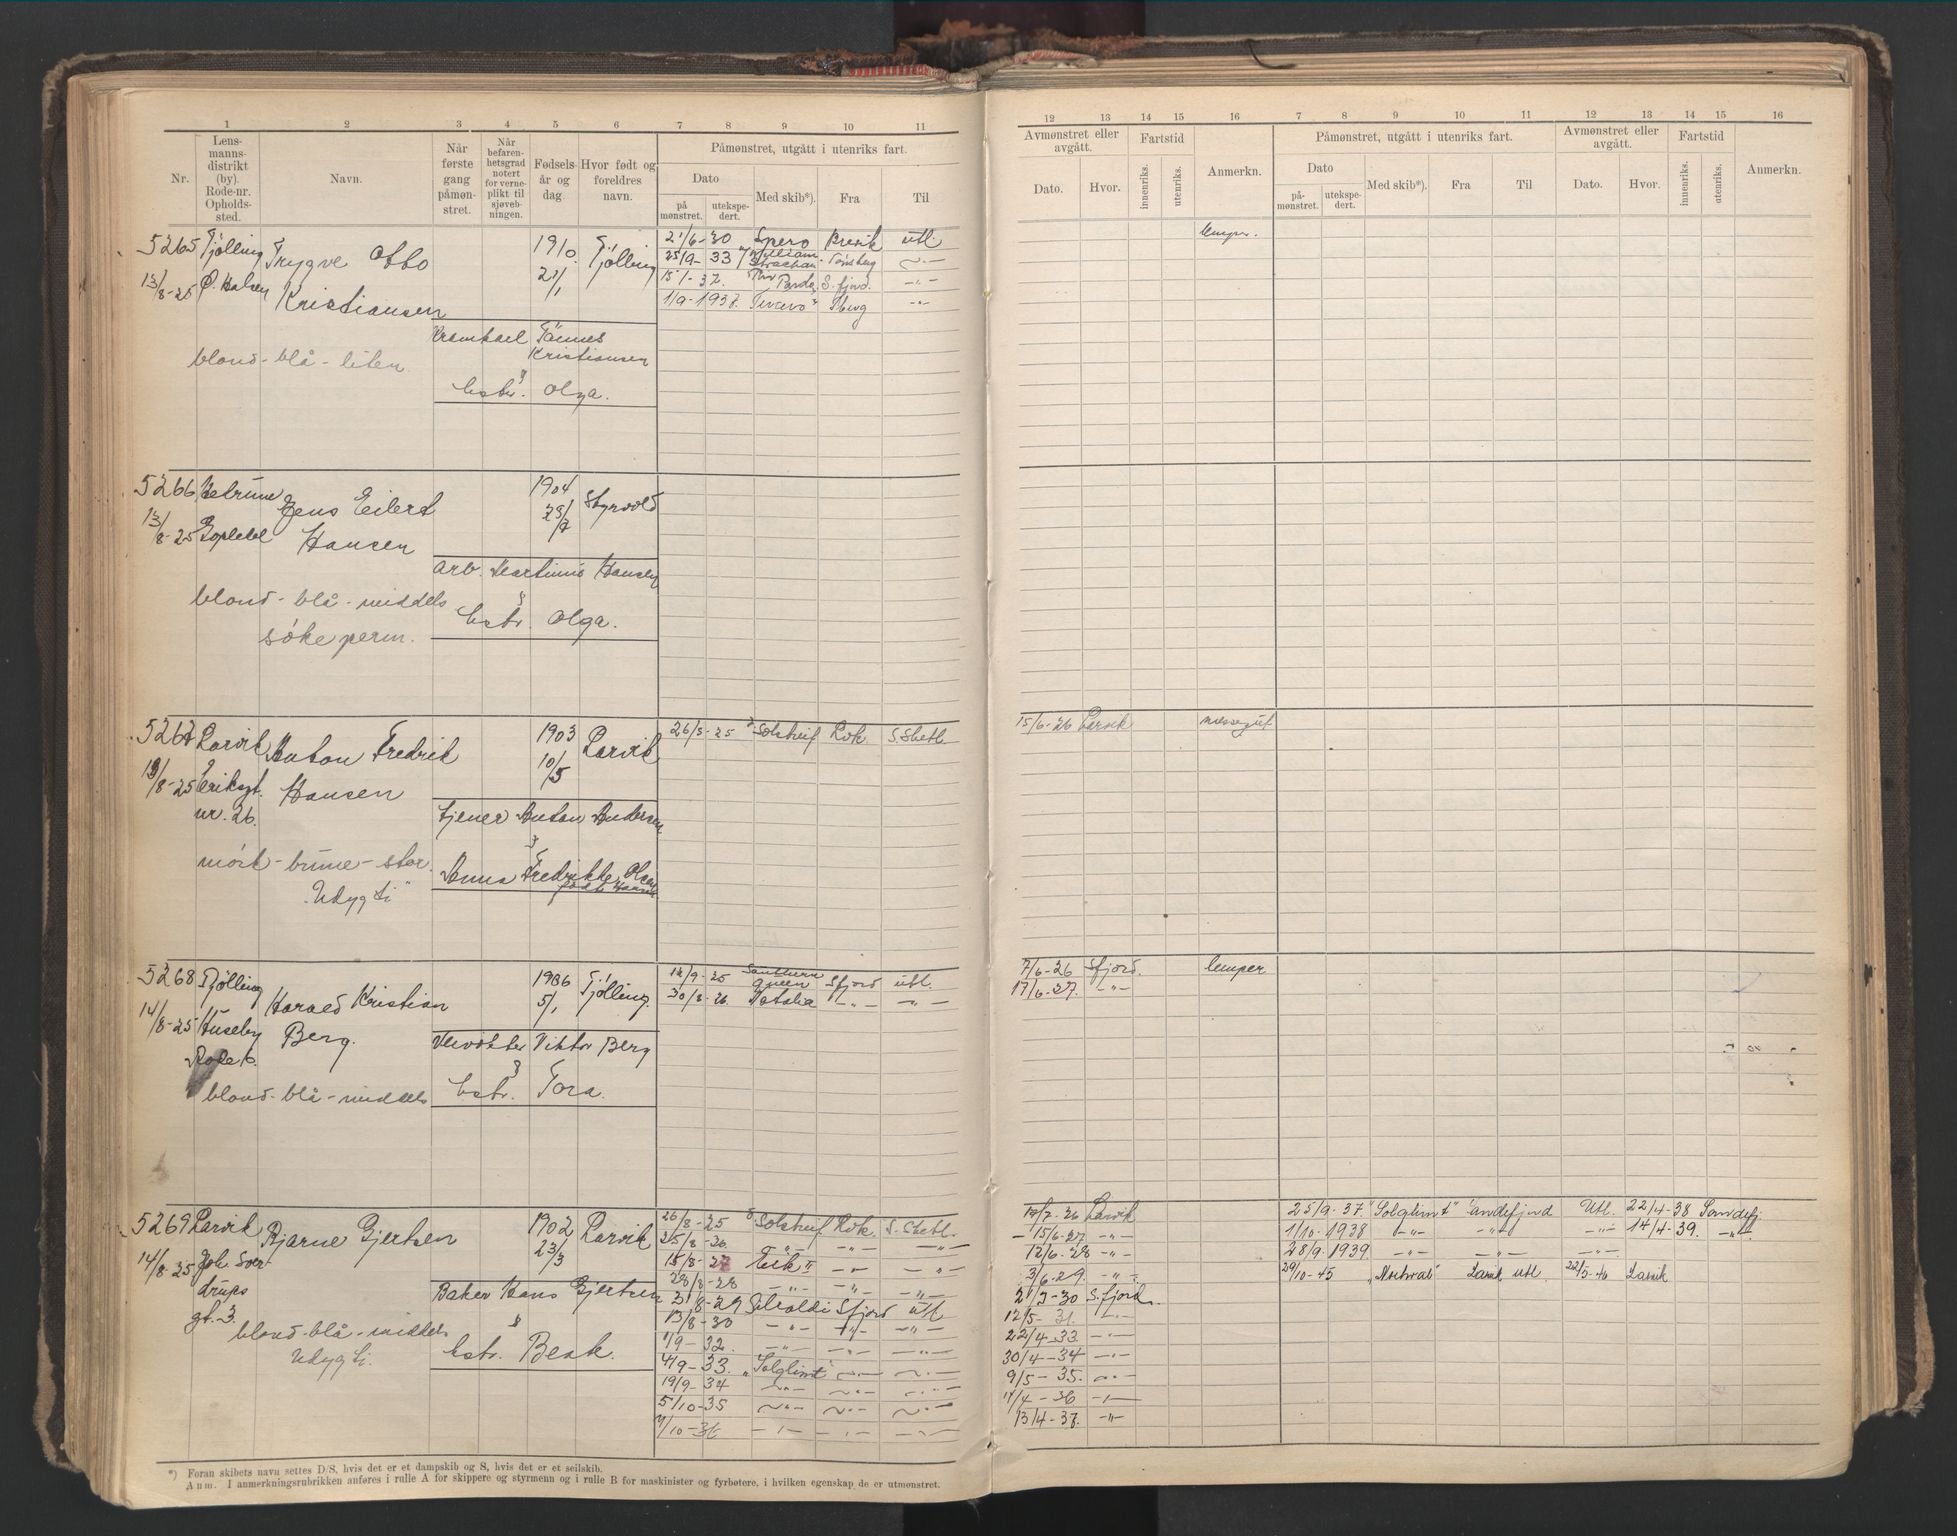 1 2 3 4 5 6 7 8 9 10 11
Nr.
Lens-
manns-
distrikt
(by).
Rode-nr.
Opholds-
sted.
Navn.
Når
første
gang
påmøn-
stret.
Når
befaren-
hetsgrad
notert
for verne-
plikt til
sjøveb-
ningen.
Fødsels-
år og
dag
Hvor født og
foreldres
navn.
Påmønstret, utgått i utenriks fart.
Dato
på
mønstret.
utekspe-
dert.
Med skib*).
Fra
Til
5265 Tjølling Trygve Otto 1910 Tjølling
13/8-25 Ø. Halsen Kristiansen 21/1
21/6-30 Spero Brevik utl.
25/9-33 William Strachan Tønsberg -"-
15/1-37. Thor S.fjord. -"-
1/9-1937. -"-
Tønnes
Kristiansen
blond - blå - liten.
hstr. Olga.
5266 1904 Styrvold
13/8-25 Jens Eilert
Hansen
arb. Martinius Hansen
blond - blå - middels
hstr. Olga.
søke perm.
5267 Larvik Anton Fredrik 1903 Larvik
8-25 Hansen 10/5
nr. 26.
26/8-25 Solstreif Lvk. S. Shetl.
tjener Anton Andersen
mørk - brune - stor
Anna Fredrikke Olsen
født Hansen
Udygti
5268 Tjølling Harald Kristian 1906 Tjølling.
14/8-25 Huseby Berg. 5/1
Rode 6.
12/9-25 Southern Queen Sfjord utl.
30/8-26. Natalia -"- -"-
Viktor Berg
blond - blå - middels
hstr. Tora.
5269 Larvik Bjarne Gjertsen 1902 Larvik
14/8-25 Joh. Sver- 23/3
drups
gt. 3.
Baker Hans Gjertsen
blond - blå - middels
hstr. Beak.
Udygti.
26/8-25 Solstreif Lvk. S. Shetl.
25/8-26. -"- -"- -"-
15/8-27 Eik II -"- -"-
28/8-28 -"- -"- -"-
31/8-29 Sfjord utl
13/8-30 -"- -"- -"-
1/9-32. -"- -"- -"-
4/9-33. "Solglimt" -"- -"-
19/9-34 -"- -"- -"-
5/10-35 -"- -"- -"-
7/10-36 -"- -"- -"-
*) Foran skibets navn settes D/S, hvis det er et dampskib og S, hvis det er et seilskib.
Anm. I anmerkningsrubrikken anføres i rulle A for skippere og styrmenn og i rulle B for maskinister og fyrbøtere, i hvilken egenskap de er utmønstret.
12 13 14 15 16 7 8 9 10 11 12 13 14 15 16
Avmønstret eller
avgått.
Dato.
Hvor.
Fartstid
innenriks.
utenriks.
Anmerkn.
Påmønstret, utgått i utenriks fart.
Dato
på-
mønstret.
utekspe-
dert.
Med skib*).
Fra
Til
Avmønstret eller
avgått.
Dato.
Hvor.
Fartstid
innenriks.
utenriks.
Anmerkn.
lemper.
15/6-26 Larvik messegut
7/6-26 Sfjord. lemper
17/6-27. -"-
17/7-26 Larvik 25/9-37. "Solglimt" Utl. 22/4-38 Sandefj.
15/6-27 -"- 1/10-1938 -"- -"- -"- 14/4-39. -"-
12/6-28 -"- 28/9-1939. -"- -"- -"-
3/6-29. -"- 29/10-45 Larvik utl. 22/5-46 Larvik
21/3-30 S.fjord.
12/5-31. -"-
22/4-33. -"-
30/4-34 -"-
9/5-35. -"-
17/4-36 -"-
13/4-37. -"-